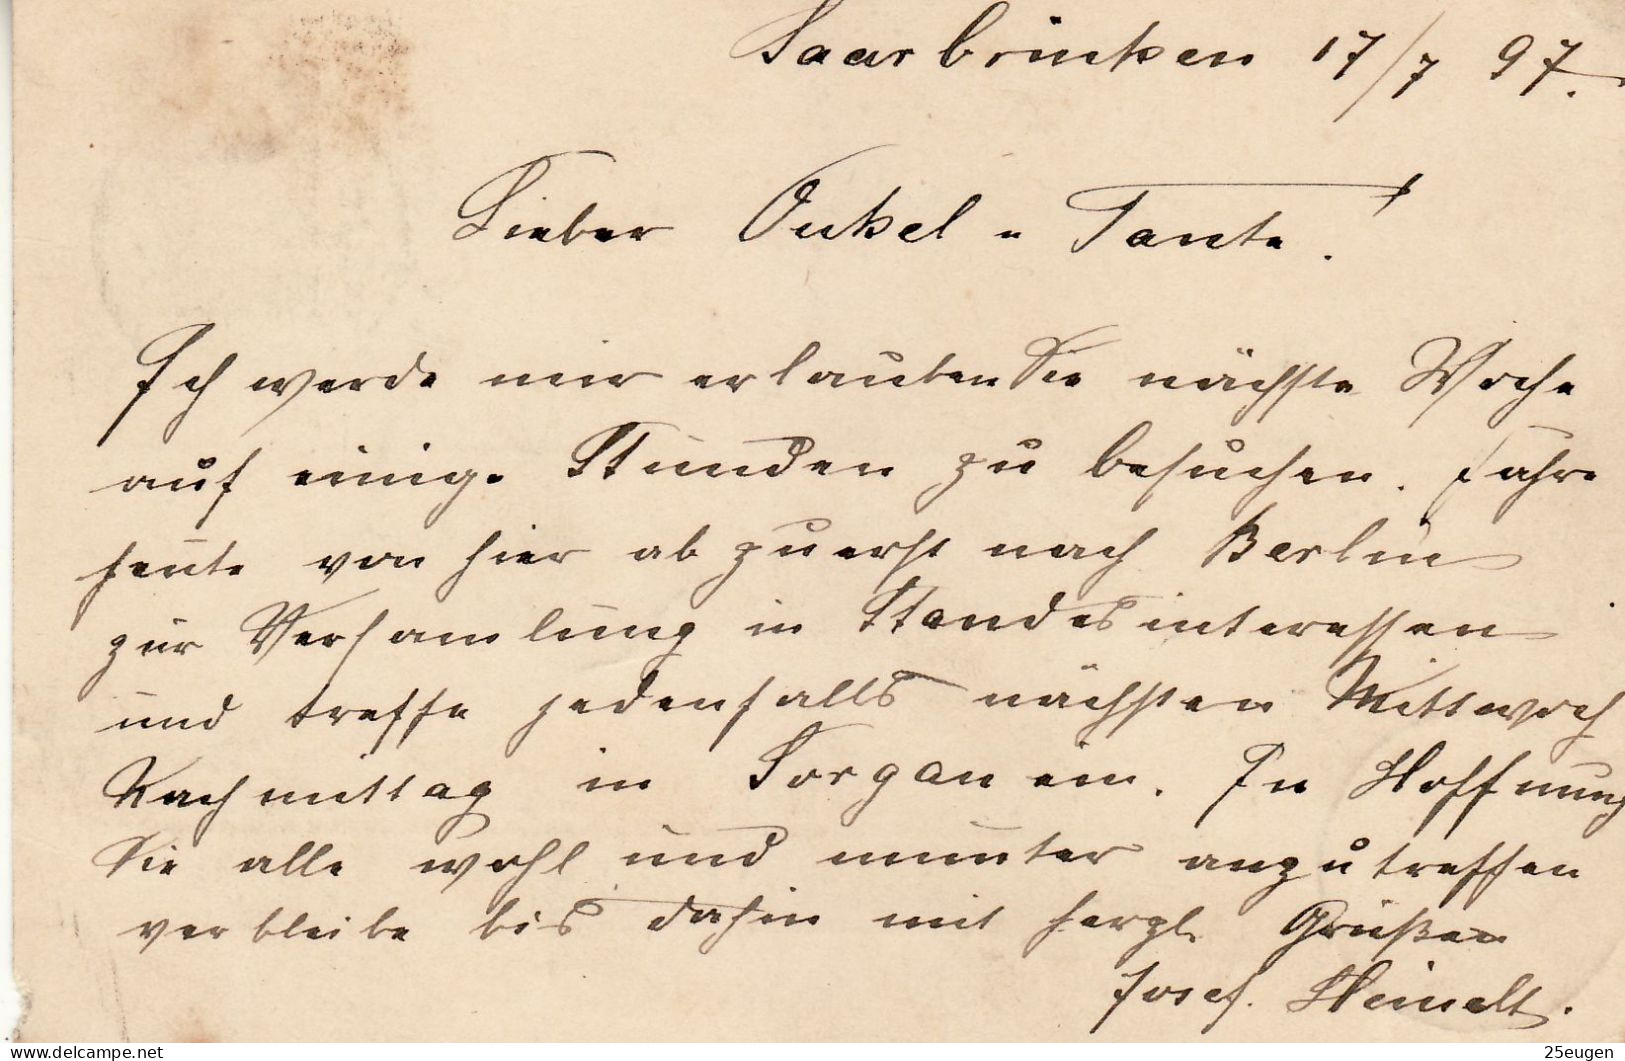 Saarbrücken 17/7 97.
Lieber Onkel u Tante!
Ich werde mir erlauben Sie nächste Woche
auf einige Stunden zu besuchen. Fahre
heute von hier ab zuerst nach Berlin
zur Versamlung in Standesinteressen
und treffe jedenfalls nächsten Mittwoch
Nachmittag in Sorgau ein. In Hoffnung
Sie alle wohl und munter anzutreffen
verbleibe bis dahin mit herzl. Grüßen
Josef. Heinelt.
25eugen
www.delcampe.net